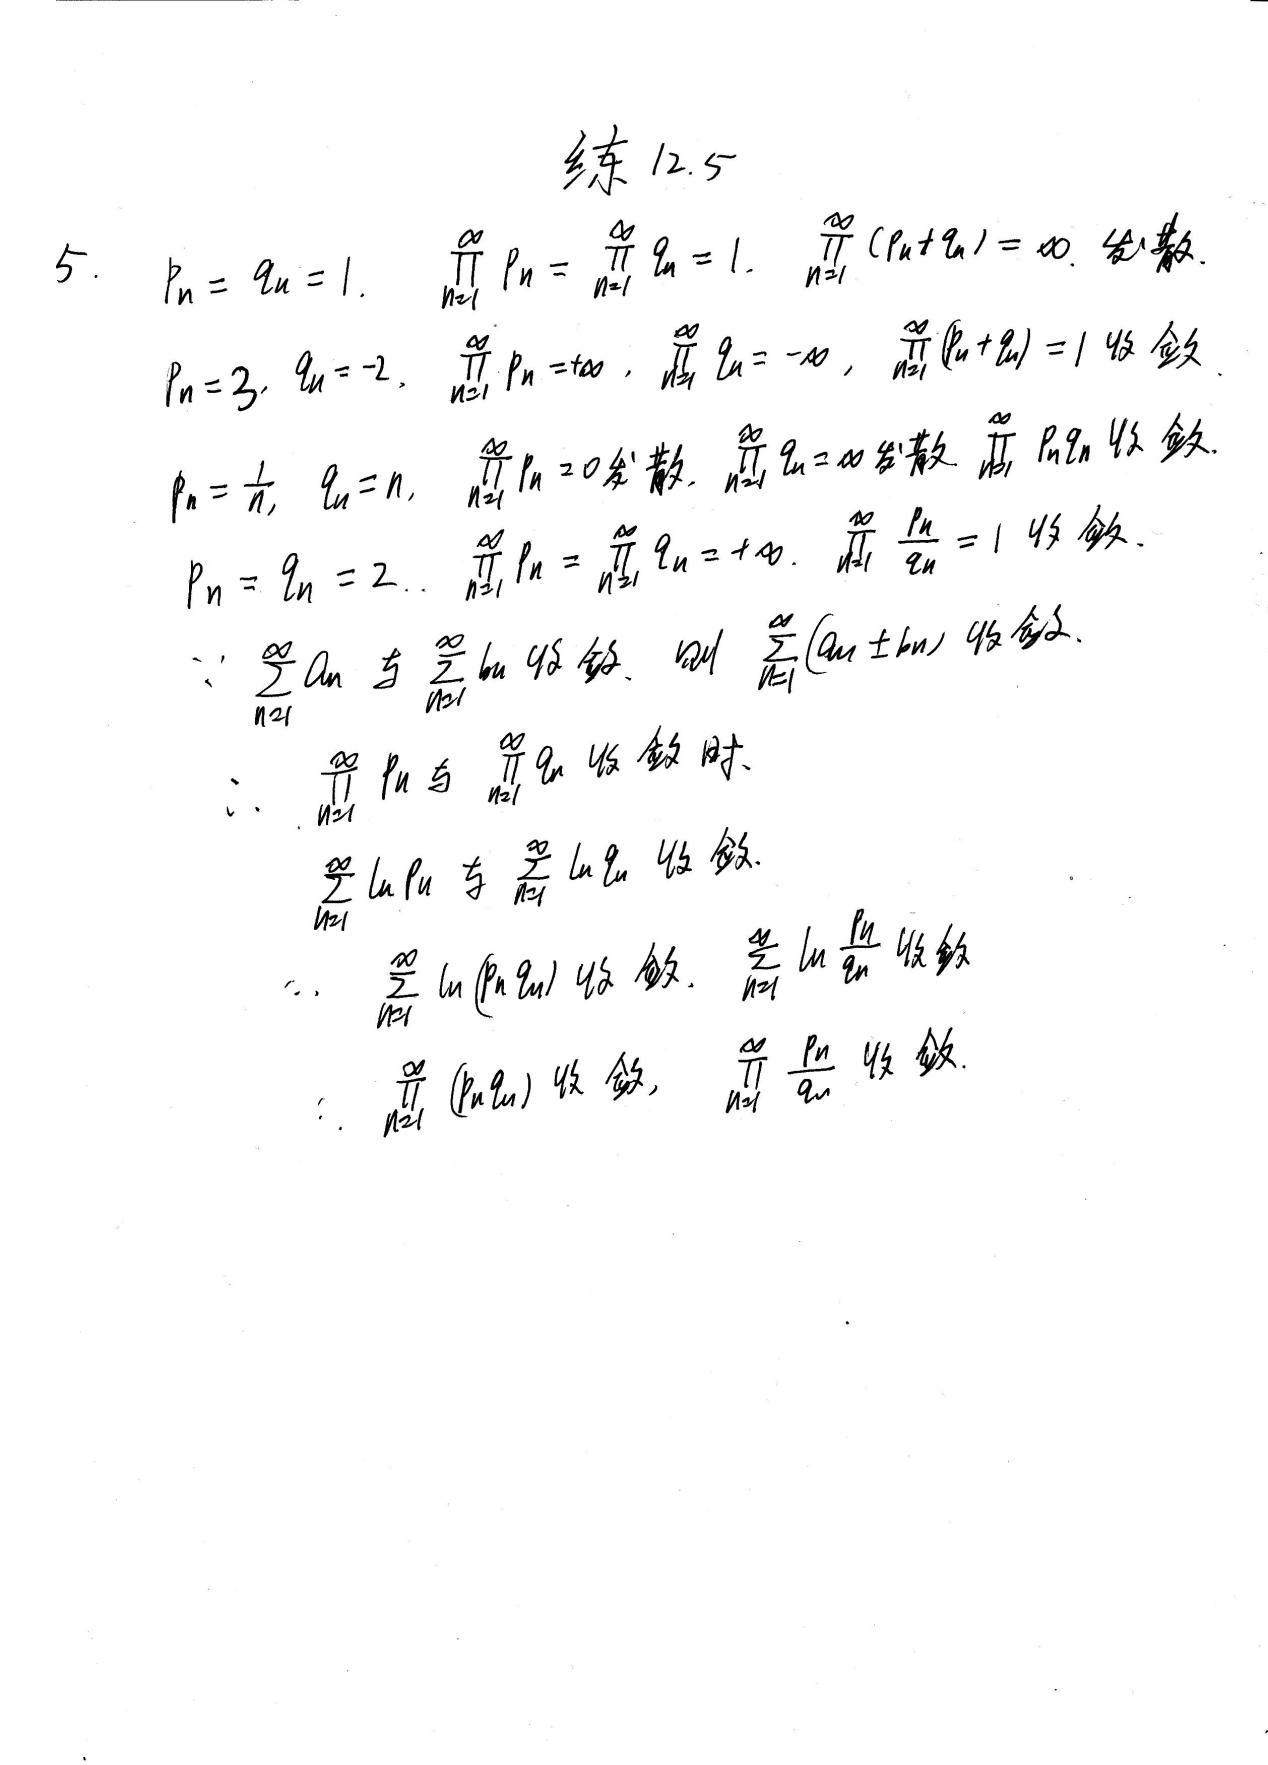 练 12.5
5. Pn = qn = 1. ∏_{n=1}^{∞} Pn = ∏_{n=1}^{∞} qn = 1. ∏_{n=1}^{∞} (Pn+qn) = ∞. 发散.
Pn = 3, qn = -2, ∏_{n=1}^{∞} Pn = +∞, ∏_{n=1}^{∞} qn = -∞, ∏_{n=1}^{∞} (Pn+qn) = 1 收敛.
Pn = 1/n, qn = n, ∏_{n=1}^{∞} Pn = 0 发散. ∏_{n=1}^{∞} qn = ∞ 发散. ∏_{n=1}^{∞} Pnqn 收敛.
Pn = qn = 2.. ∏_{n=1}^{∞} Pn = ∏_{n=1}^{∞} qn = +∞. ∏_{n=1}^{∞} Pn/qn = 1 收敛.
∵ ∑_{n=1}^{∞} an 与 ∑_{n=1}^{∞} bn 收敛. 则 ∑_{n=1}^{∞} (an ± bn) 收敛.
∴ ∏_{n=1}^{∞} Pn 与 ∏_{n=1}^{∞} qn 收敛时、
∑_{n=1}^{∞} ln Pn 与 ∑_{n=1}^{∞} ln qn 收敛.
∴ ∑_{n=1}^{∞} ln (Pn qn) 收敛. ∑_{n=1}^{∞} ln Pn/qn 收敛
∴ ∏_{n=1}^{∞} (Pn qn) 收敛, ∏_{n=1}^{∞} Pn/qn 收敛.